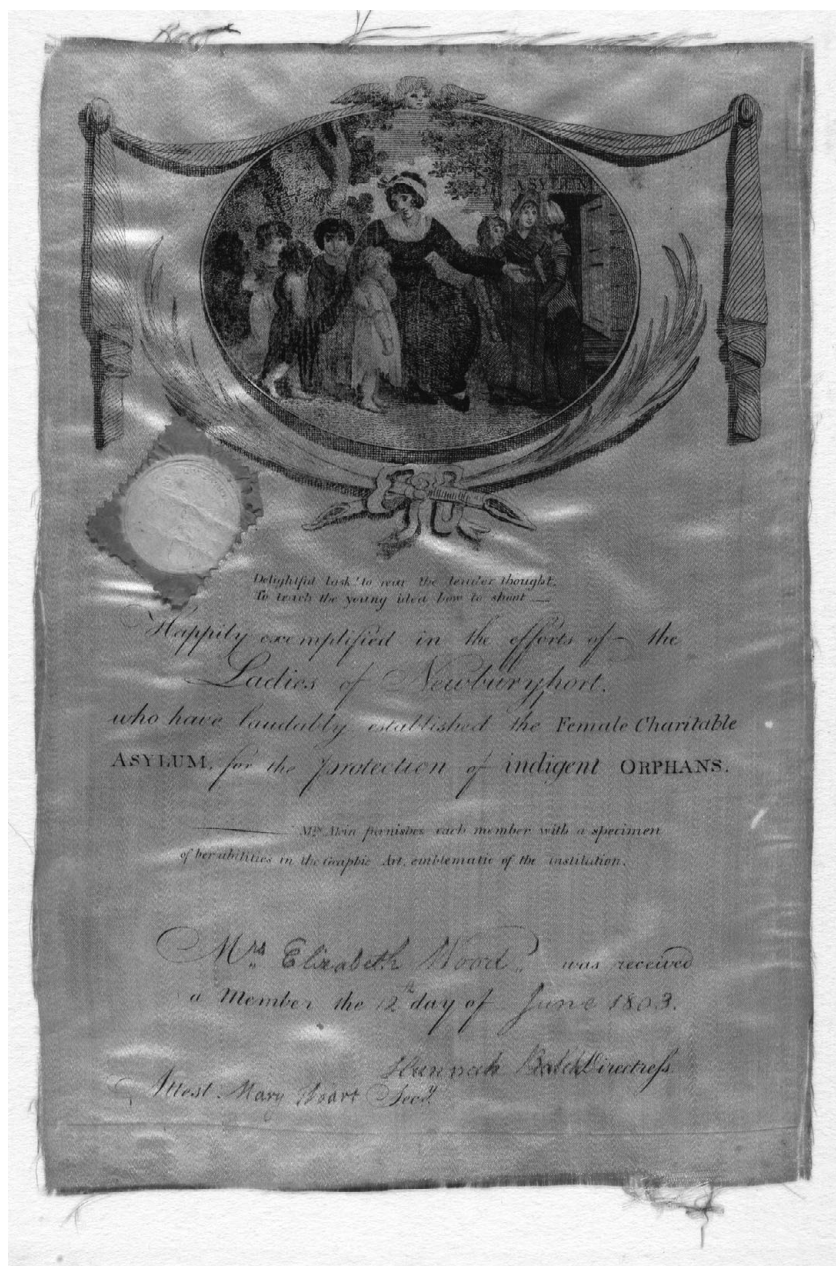 ASYLUM
Delightful task! to rear the tender thought,
To teach the young idea how to shoot
Happily exemplified in the efforts of the
Ladies of Newburyport.
who have laudably established the Female Charitable
ASYLUM, for the protection of indigent ORPHANS.
Mrs furnishes each member with a specimen
of her abilities in the Graphic Art, emblematic of the institution.
Mrs Elizabeth Wood, was received
a Member the 12th day of June 1803.
Hannah Directress
Attest. Mary Secy.